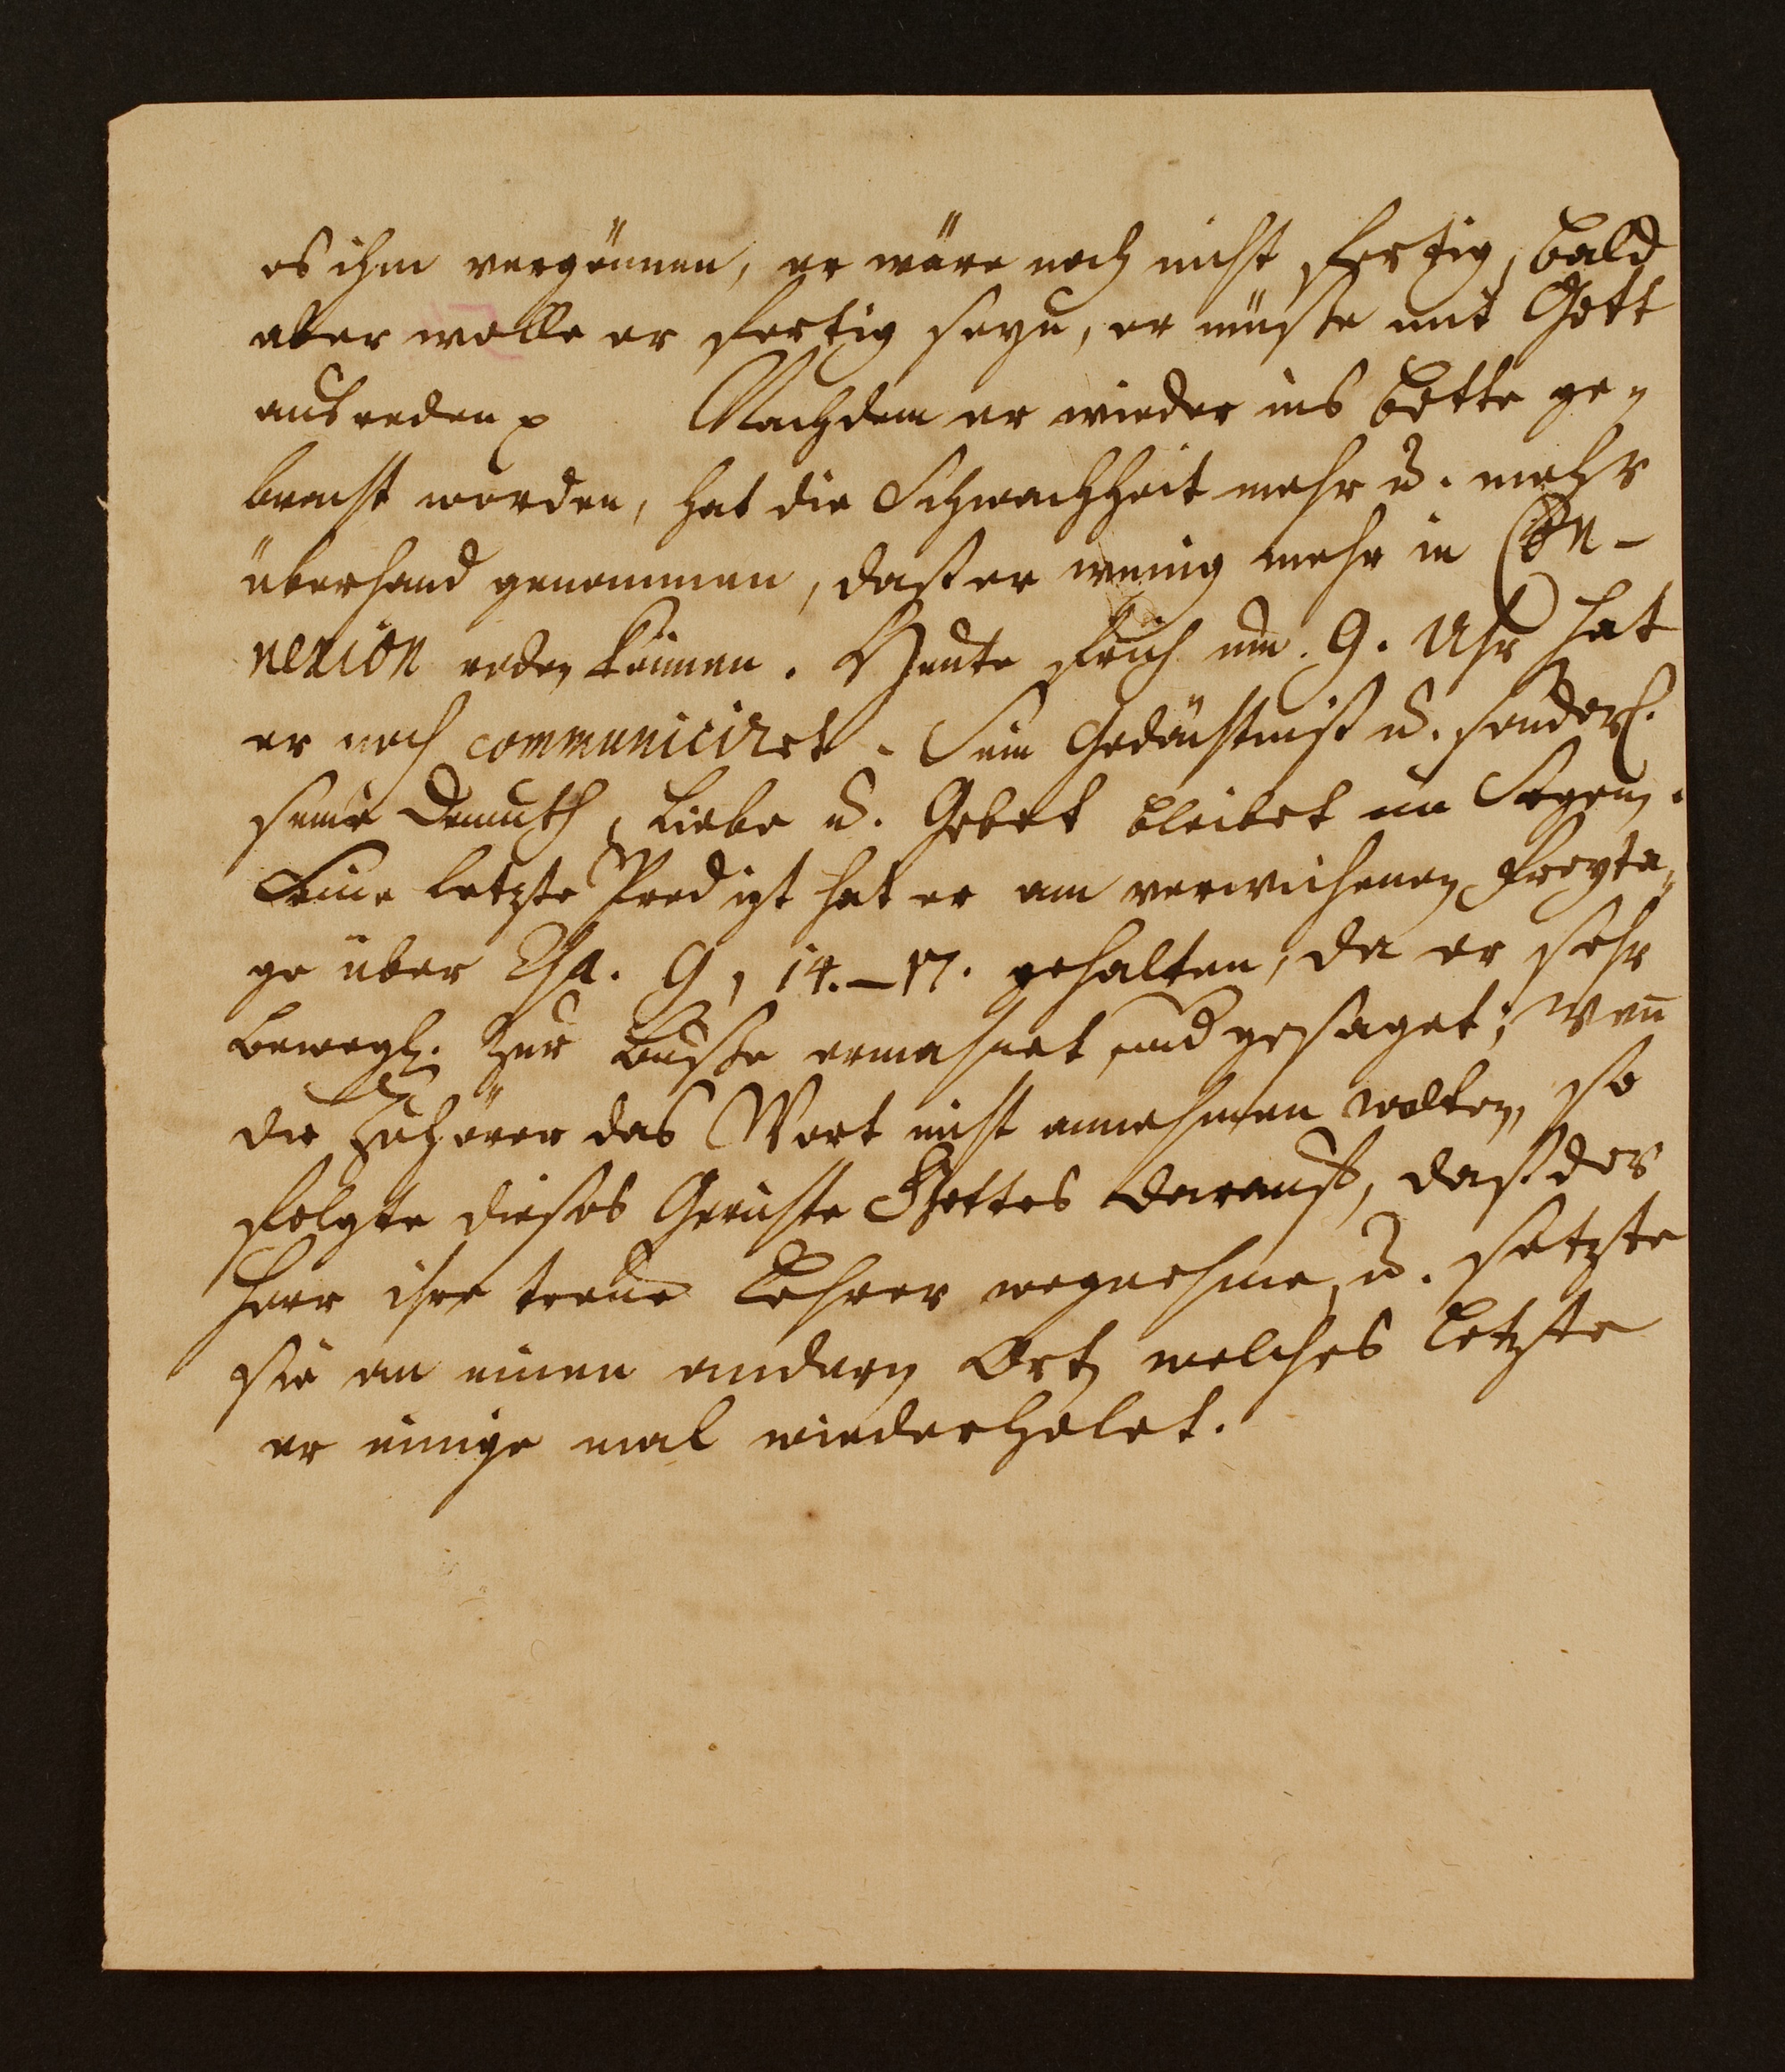 es ihm vergönnen, er wäre noch nicht fertig, bald
aber wolle er fertig seyn, er müste mit Gott
ausreden p Nachdem er wieder ins Bette ge-
bracht worden, hat die Schwachheit mehr u. mehr
überhand genommen, daß er wenig mehr in Con-
nexion reden können. Heute früh um 9. Uhr hat
er noch communiciret. Sein Gedächtniß u. sonderl.
seine Demuth, Liebe u. Gebet bleibet im Segen.
Seine letzte Predigt hat er am verwichenen Freyta-
ge über Esa. 9, 14.–17. gehalten, da er sehr
bewegl. zur Buße ermahnet und gesaget; Wenn
die Zuhörer das Wort nicht annehmen wolten, so
folgte dieses Gerichte Gottes darauß, daß der
Herr ihre treue Lehrer wegnehme, u. setzte
sie an einen andern Ort, welches letzte
er einige mal wiederholet.